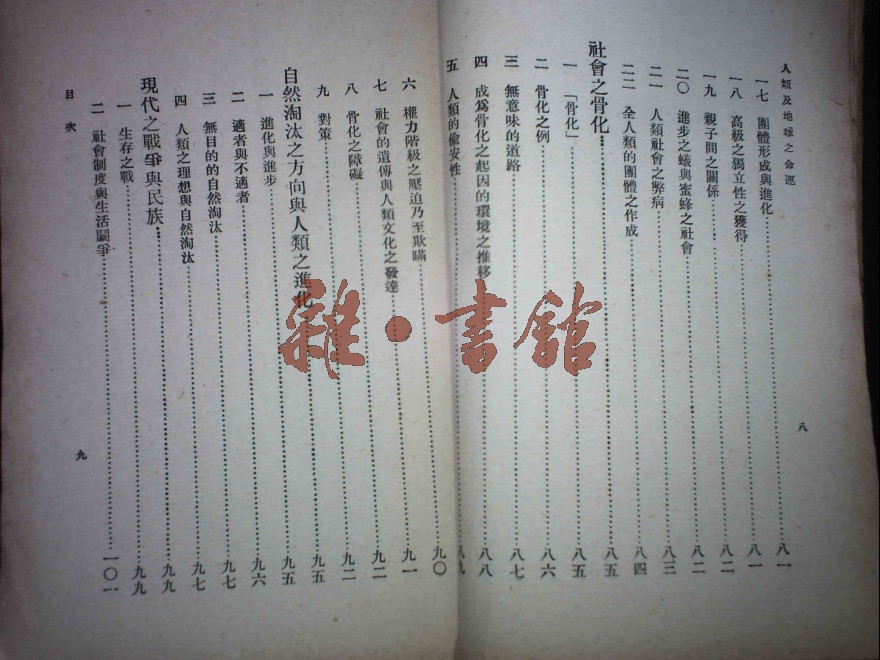 人類及地球之命運
一七 團體形成與進化……八一
一八 高級之獨立性之獲得……八一
一九 親子間之關係……八二
二〇 進步之蟻與蜜蜂之社會……八二
二一 人類社會之弊病……八三
二二 全人類的團體之作成……八四
社會之骨化……八五
一 「骨化」……八五
二 骨化之例……八六
三 無意味的道路……八七
四 成爲骨化之起因的環境之推移……八八
五 人類的偷安性……八九
八
六 權力階級之壓迫乃至欺瞞……九〇
七 社會的遺傳與人類文化之發達……九一
八 骨化之障礙……九二
九 對策……九二
自然淘汰之方向與人類之進化……九五
一 進化與進步……九五
二 適者與不適者……九六
三 無目的的自然淘汰……九七
四 人類之理想與自然淘汰……九七
現代之戰爭與民族……九九
一 生存之戰……九九
二 社會制度與生活鬭爭……一〇一
目次
九
雜·書館